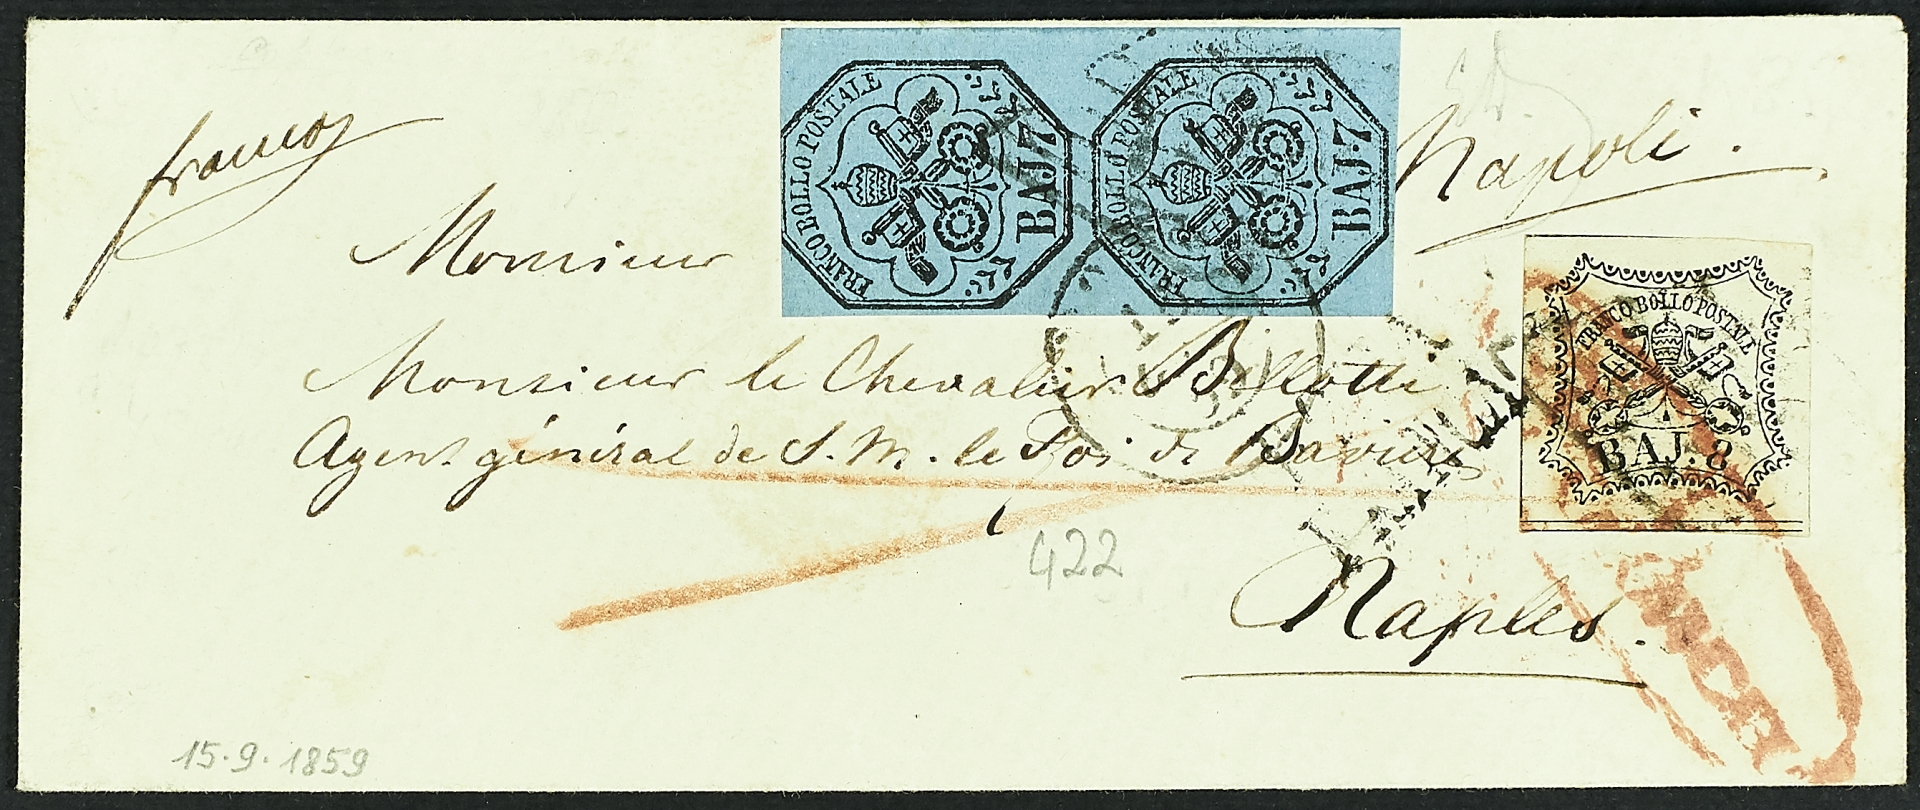 franco
Napoli.
FRANCO BOLLO POSTALE
BAJ 7
FRANCO BOLLO POSTALE
BAJ 7
FRANCO BOLLO POSTALE
BAJ. 8
Monsieur
Monsieur le Chevalier Billotti
Agent général de S. M. le Roi de Bavière
Naples.
422
15.9.1859